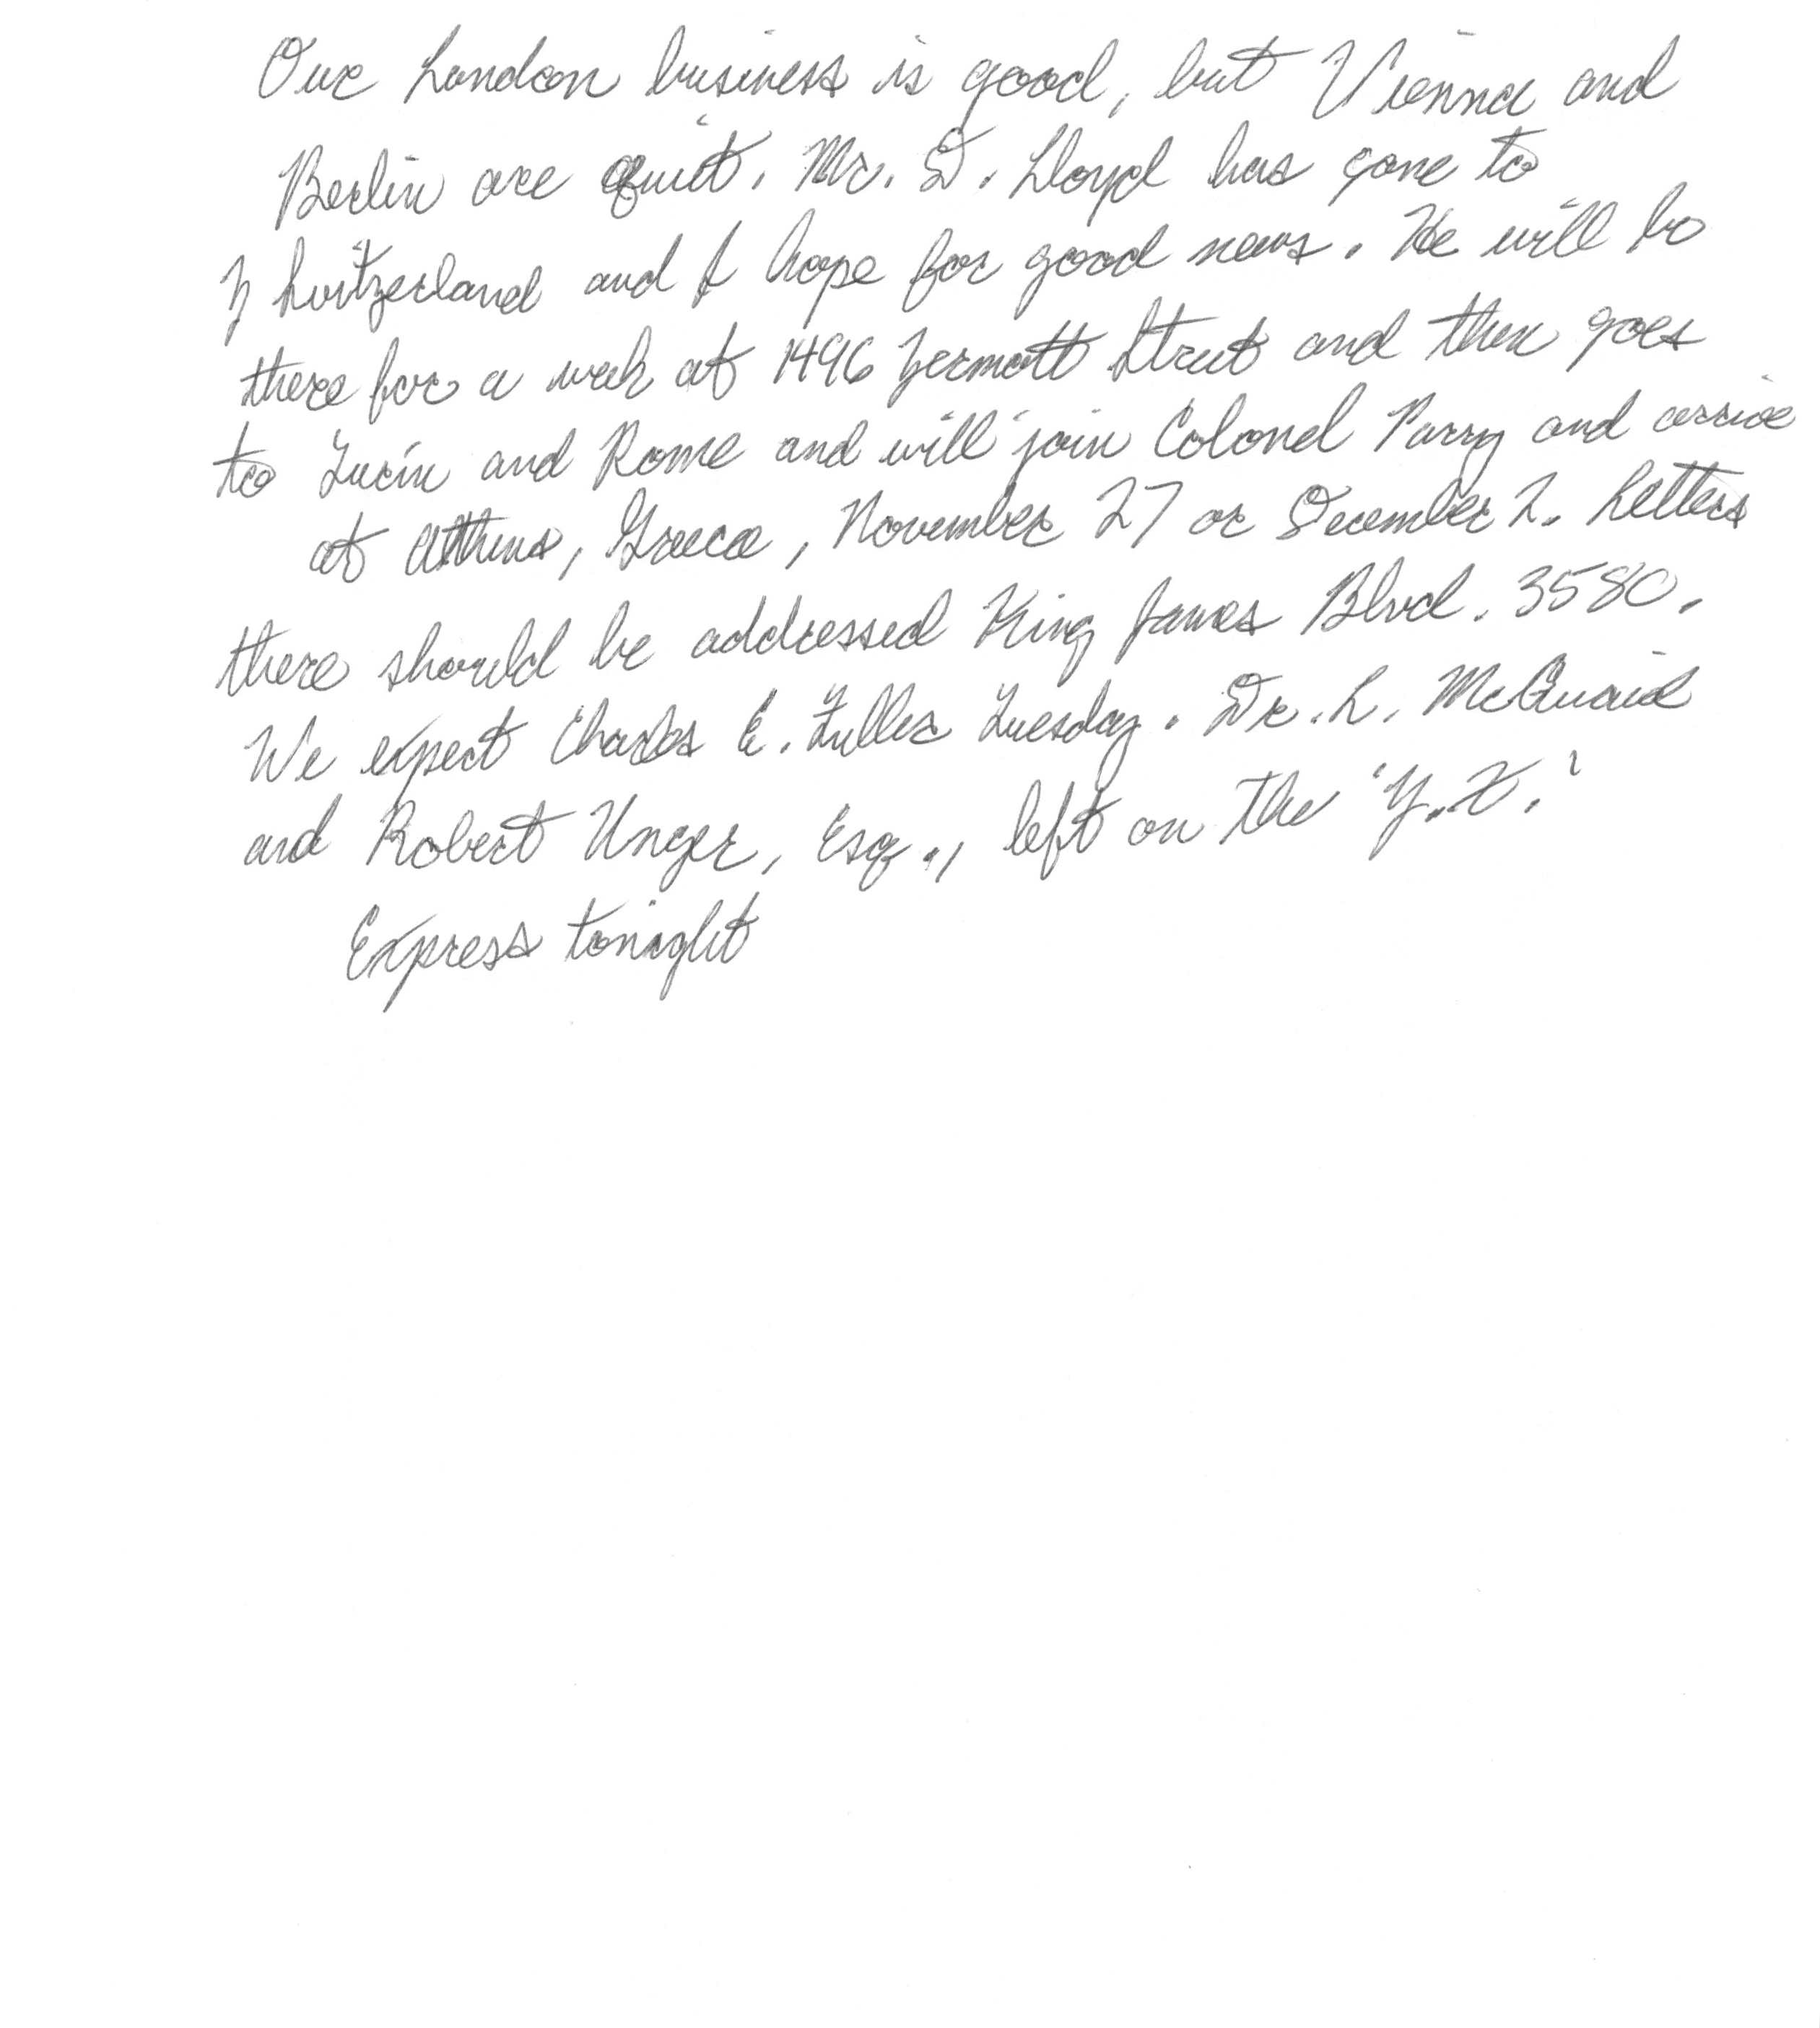 Our London business is good, but Vienna and
Berlin are quiet. Mr. D. Lloyd has gone to
Switzerland and I hope for good news. He will be
there for a week at 1496 Zermott Street and then goes
to Turin and Rome and will join Colonel Parry and arrive
at Athens, Greece, November 27 or December 2. Letters
there should be addressed King James Blvd. 3580.
We expect Charles E. Fuller Tuesday. Dr. L. McQuaid
and Robert Unger, Esq., left on the 'Y.X.'
Express tonight